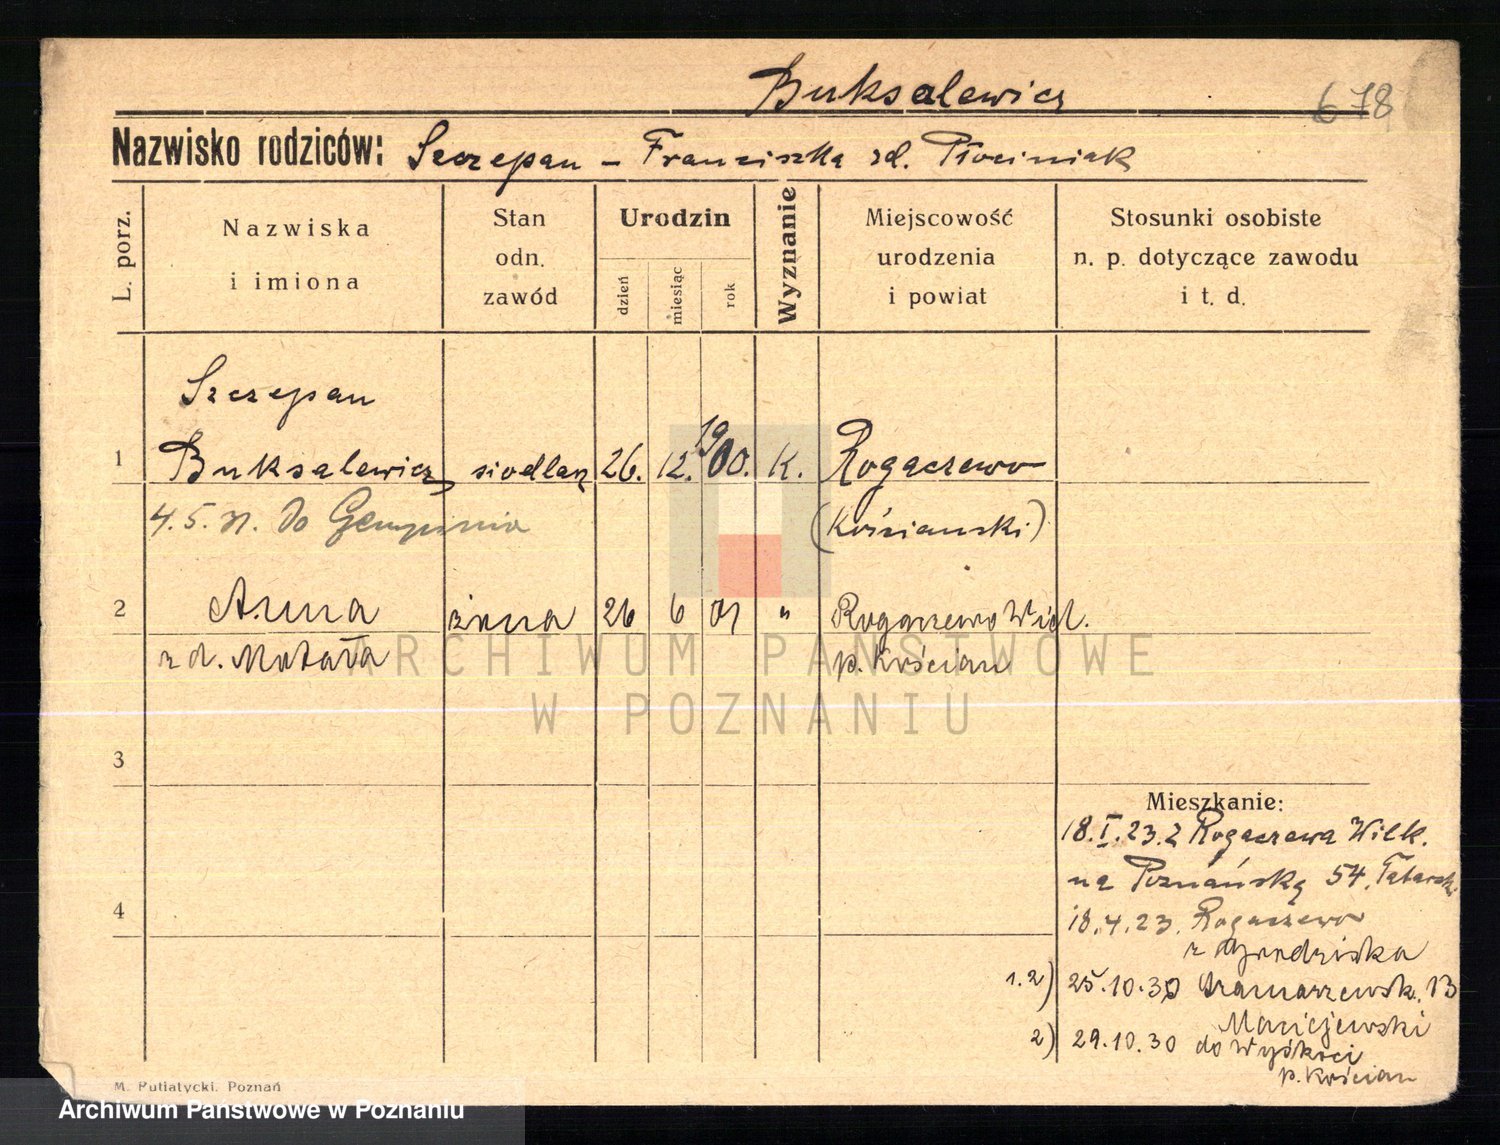 Buksalewicz
678
Nazwisko rodziców: Szczepan – Franciszka zd. Płociniak
L. porz.
Nazwiska i imiona
Stan odn. zawód
Urodzin
dzień
miesiąc
rok
Wyznanie
Miejscowość urodzenia i powiat
Stosunki osobiste n. p. dotyczące zawodu i t. d.
Szczepan
1 Buksalewicz siodlarz 26. 12. 1900. K. Rogaczewo
4. 5. 31. do
(Kościański)
2 Anna żona 26 6 01 " Rogaczewo Wiel.
zd. Matała p. Kościan
3
4
Mieszkanie:
18.I.23. z Rogaczewa Wilk.
na Poznańską 54, Tatarsk.
18.4.23. Rogaczewo
z Grodziska
1.2) 25.10.30 13
Maciejewski
2) 29.10.30 do Wyskoci
p. Kościan
M. Putiatycki. Poznań
ARCHIWUM PAŃSTWOWE
W POZNANIU
Archiwum Państwowe w Poznaniu